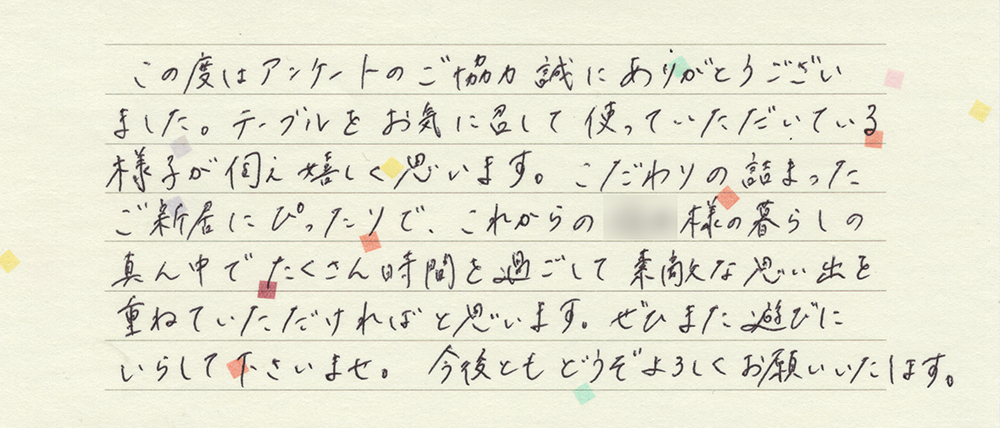 この度はアンケートのご協力誠にありがとうござい
ました。テーブルをお気に召して使っていただいている
様子が伺え嬉しく思います。こだわりの詰まった
ご新居にぴったりで、これからの 様の暮らしの
真ん中でたくさん時間を過ごして素敵な思い出を
重ねていただければと思います。ぜひまた遊びに
いらして下さいませ。今後ともどうぞよろしくお願いいたします。